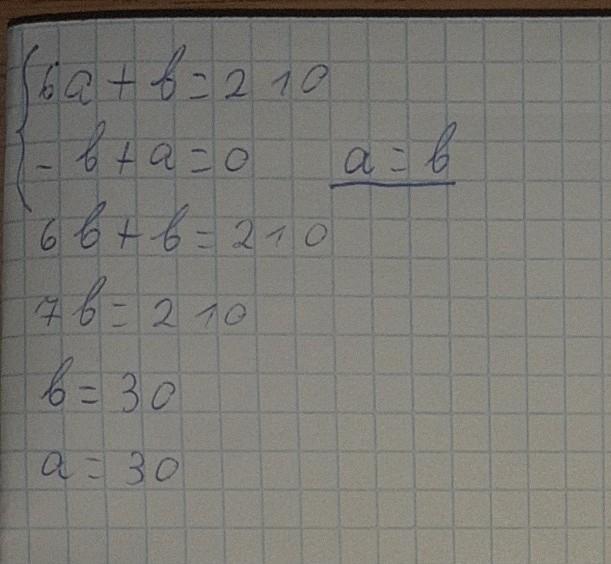 6a + b = 210
- b + a = 0 a = b
6b + b = 210
7b = 210
b = 30
a = 30